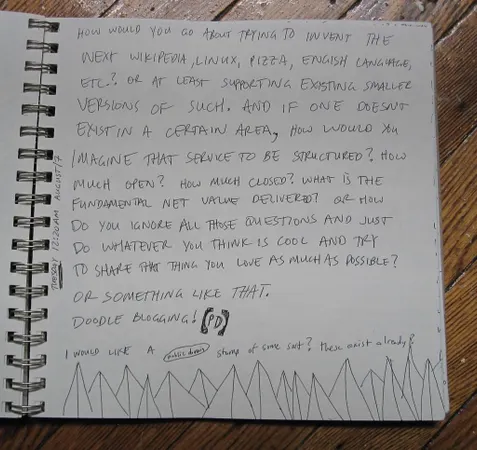 HOW WOULD YOU GO ABOUT TRYING TO INVENT THE
NEXT WIKIPEDIA, LINUX, PIZZA, ENGISH LANGUAGE,
ETC.? OR AT LEAST SUPPORTING EXISTING SMALLER
VERSIONS OF SUCH. AND IF ONE DOESNT
EXIST IN A CERTAIN AREA, HOW WOULD YOU
IMAGINE THAT SERVICE TO BE STRUCTURED? HOW
MUCH OPEN? HOW MUCH CLOSED? WHAT IS THE
FUNDAMENTAL NET VALUE DELIVERED? OR HOW
DO YOU IGNORE ALL THOSE QUESTIONS AND JUST
DO WHATEVER YOU THINK IS COOL AND TRY
TO SHARE THAT THING YOU LOVE AS MUCH AS POSSIBLE?
OR SOMETHING LIKE THAT.
DOODLE BLOGGING! (PD)
I WOULD LIKE A public domain stamp of some sort? these exist already?
TUESDAY 12:20AM AUGUST/7